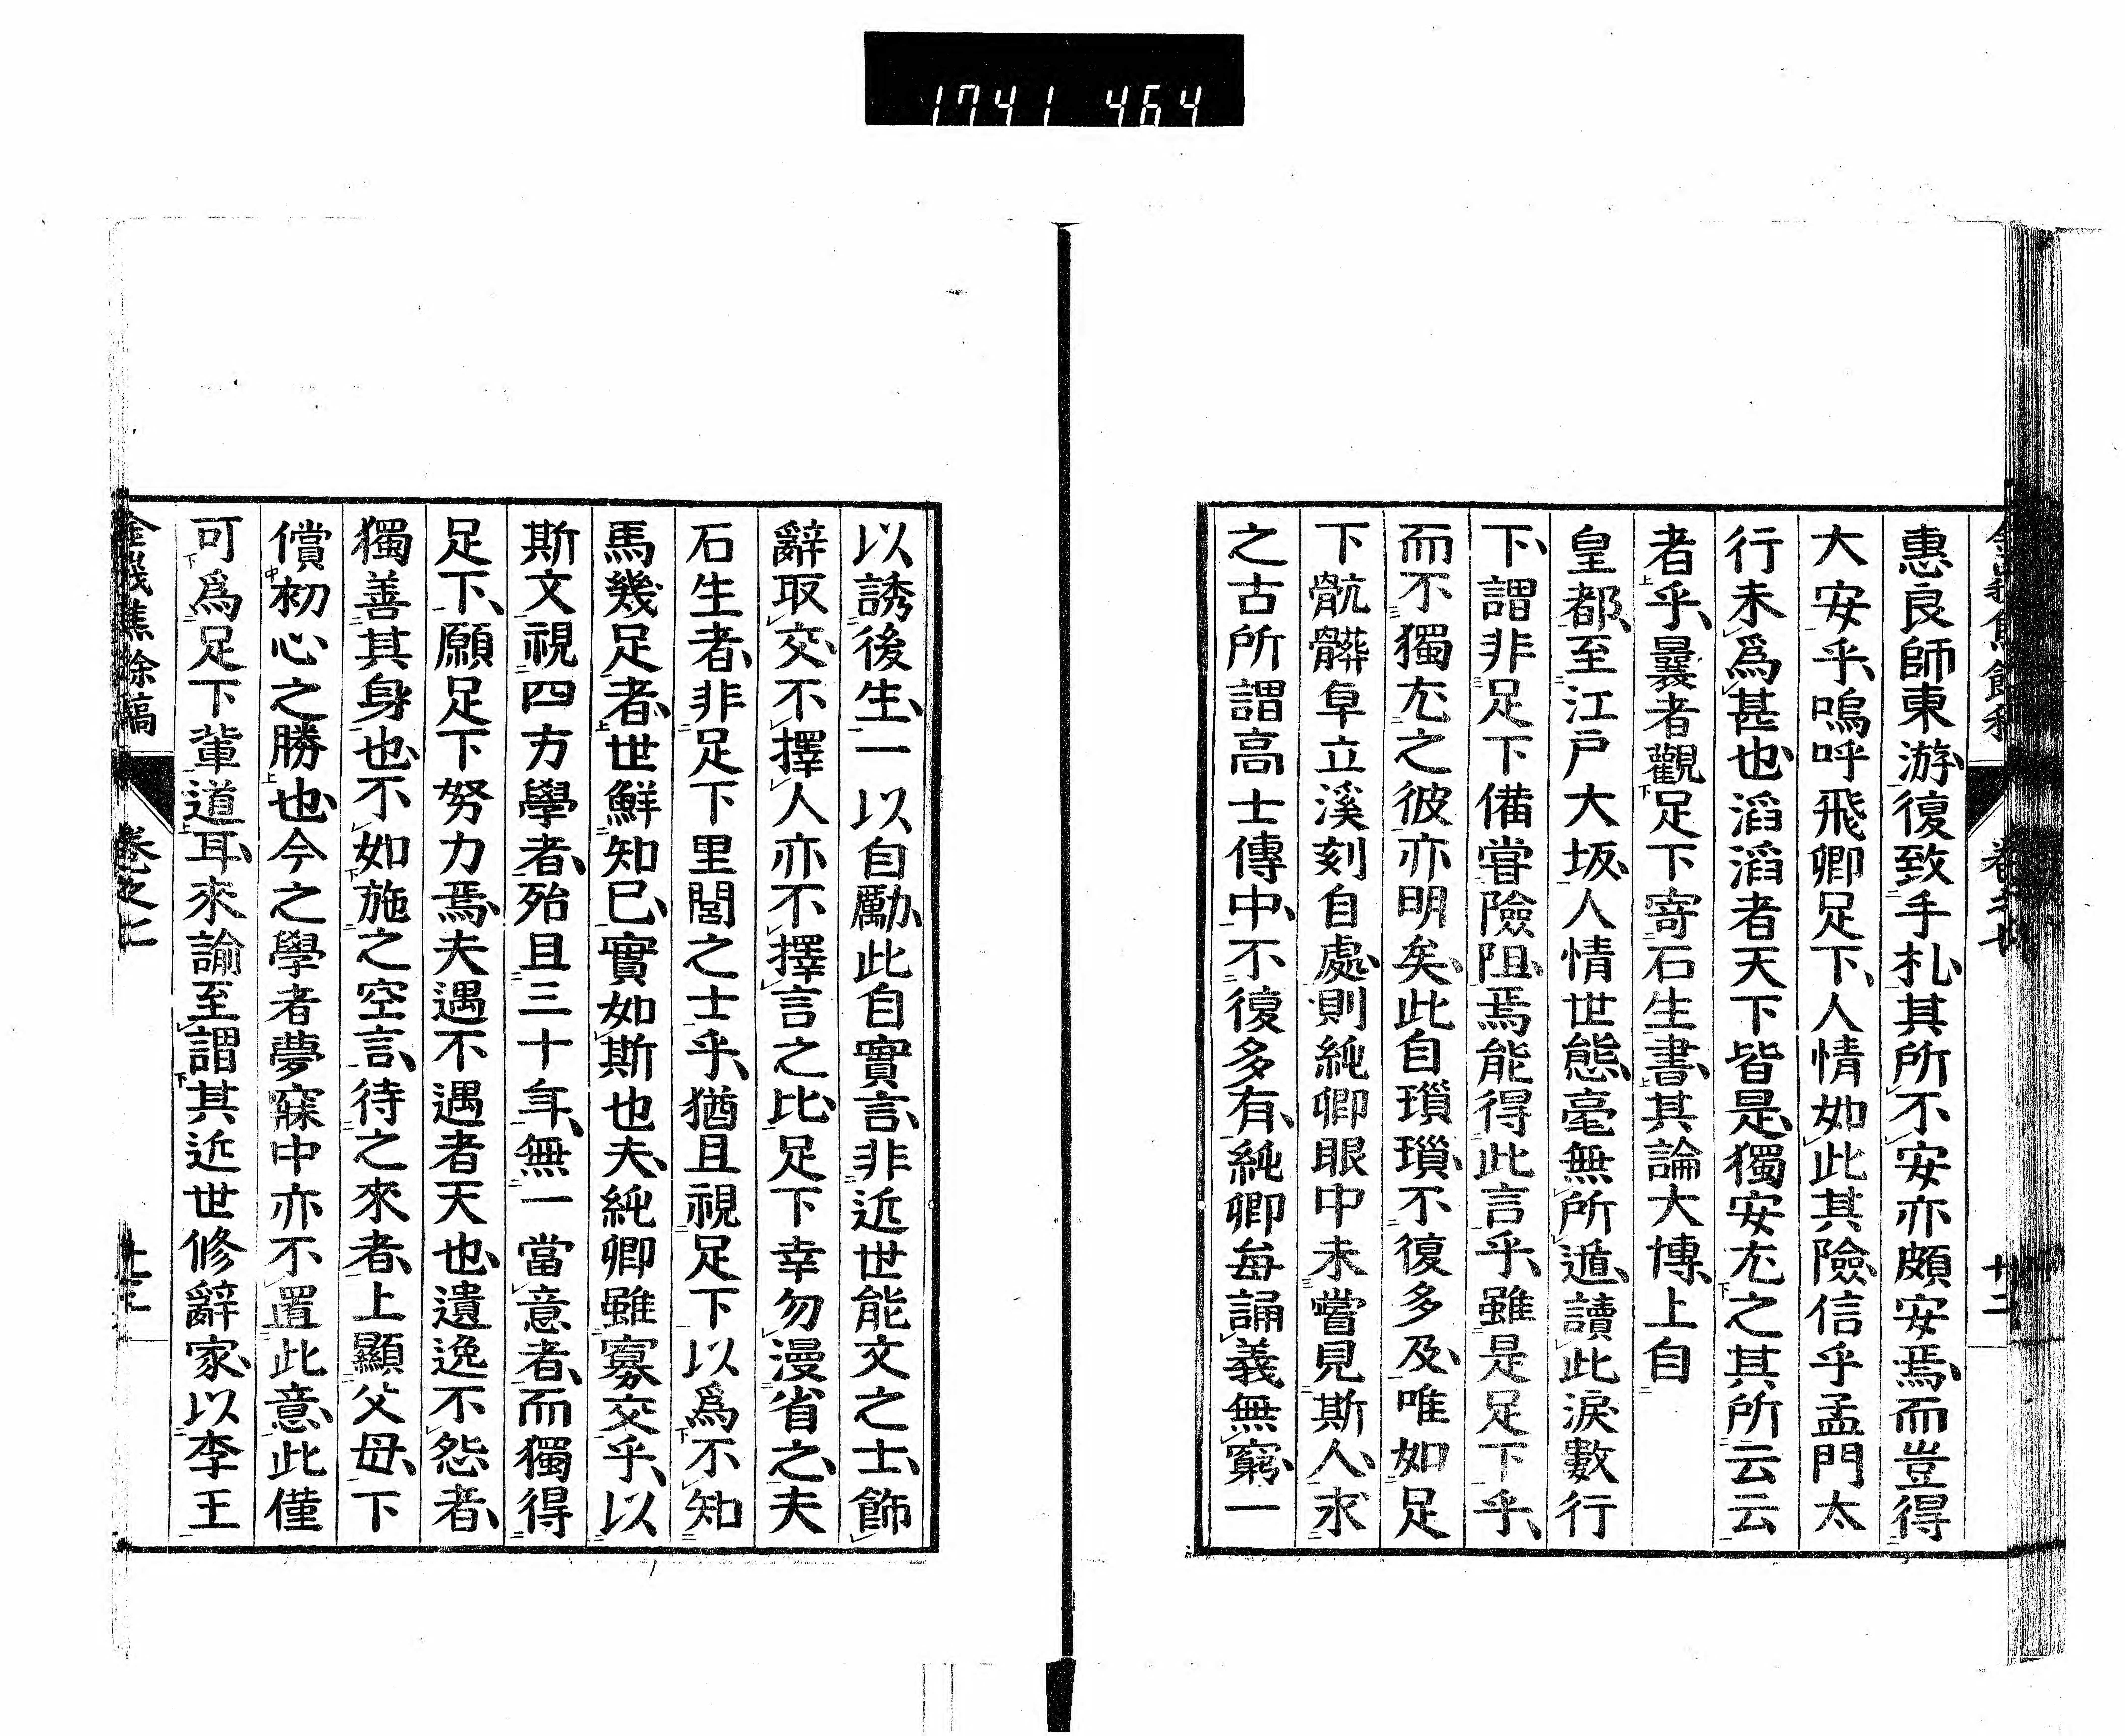 1741 464
惠良師東游、復致手札、其所不安亦頗安焉、而豈得
大安乎、嗚呼飛卿足下、人情如此其險、信乎孟門太
行未爲甚也、滔滔者天下皆是、獨安尤之其所云云
者乎、曩者觀足下寄石生書、其論大博、上自
皇都、至江戸大坂、人情世態、毫無所遁、讀此淚數行
下、謂非足下備嘗險阻、焉能得此言乎、雖是足下乎、
而不獨尤之彼亦明矣、此自瑣瑣、不復多及、唯如足
下骯髒草立溪刻自處、則純卿眼中未嘗見斯人、求
之古所謂高士傳中、不復多有、純卿每誦義無窮、一
以誘後生、一以自勵、此自實言、非近世能文之士、飾
辭取交、不擇人亦不擇言之比、足下幸勿漫省之、夫
石生者、非足下里閭之士乎、猶且視足下以爲不知
馬幾足者、世鮮知已、實如斯也夫、純卿雖寡交乎、以
斯文視四方學者、殆且三十年、無一當意者、而獨得
足下、願足下努力焉、夫遇不遇者天也、遺逸不怨者、
獨善其身也、不如施之空言、待之來者、上顯父母、下
償初心之勝也、今之學者夢寐中亦不置此意、此僅
可爲足下輩道耳、來諭至謂其近世修辭家、以李王
卷之七